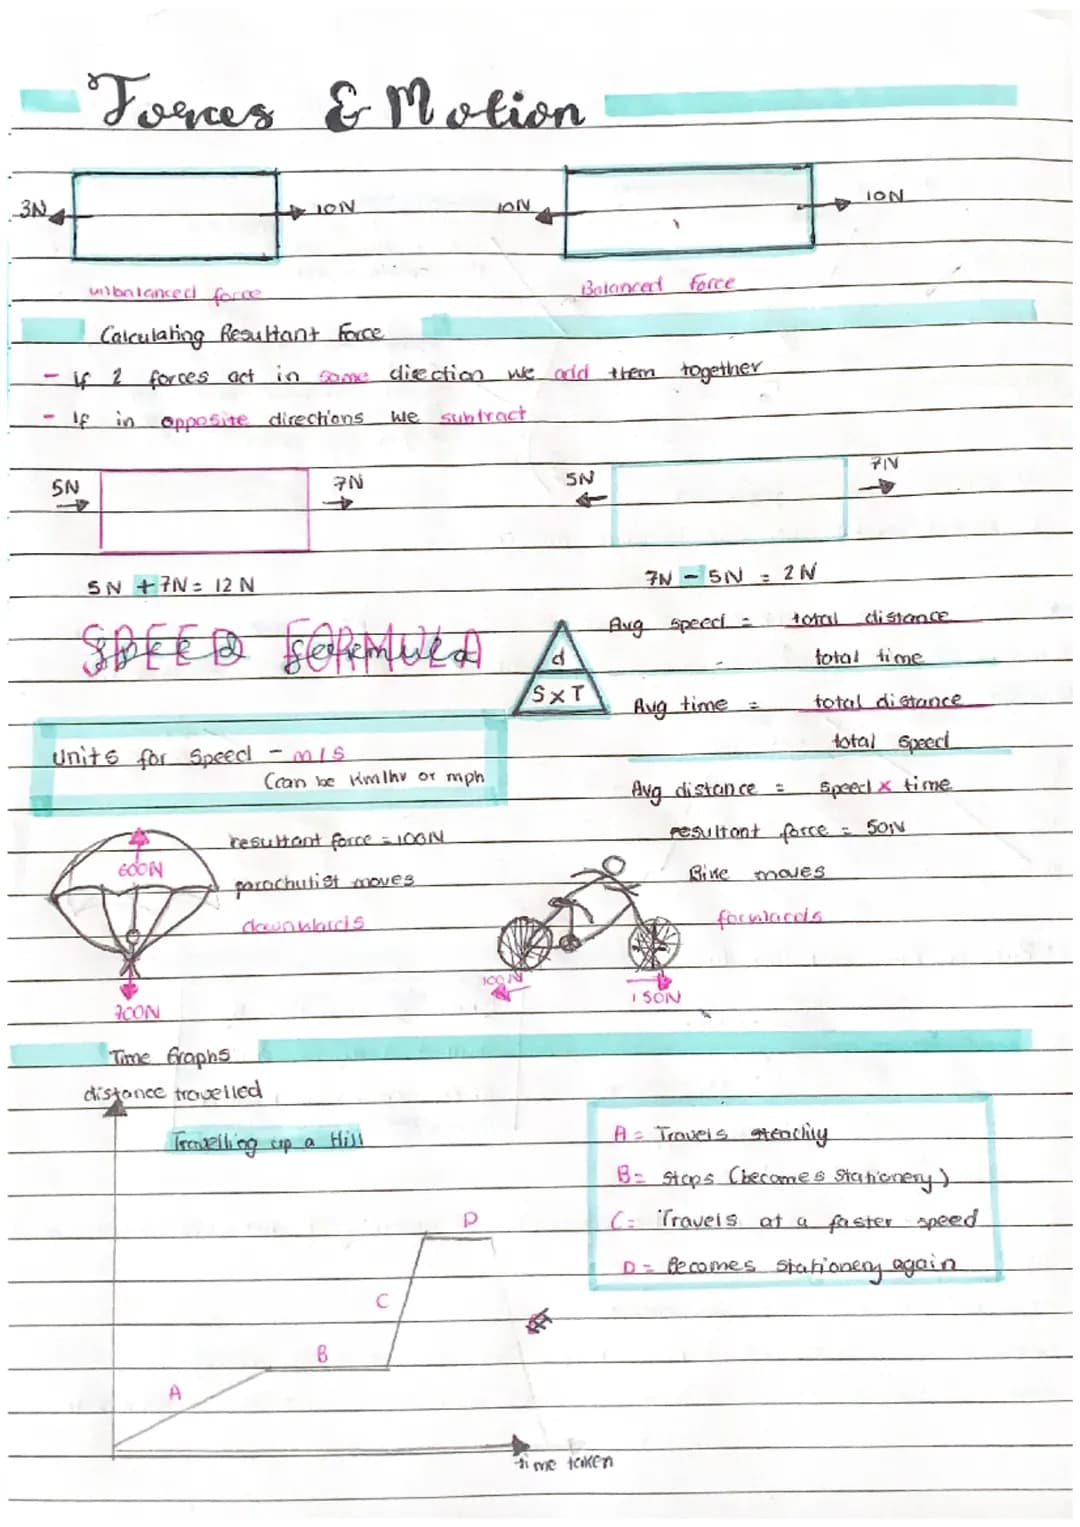 Forces & Motion
3N 10N 10N 10N
unbalanced force Balanced force
Calculating Resultant Force
- if 2 forces act in same direction we add them together
- If in opposite directions we subtract
5N 7N 5N 7N
5N + 7N = 12N 7N - 5N = 2N
SPEED FORMULA
d
S x T
Avg speed = total distance
total time
Avg time = total distance
total speed
Avg distance = speed x time
units for speed - m/s
(can be km/hr or mph
600N
resultant force = 100N
parachutist moves
downwards
700N
resultant force = 50N
Bike moves
forwards
100N
150N
Time Graphs
distance travelled
Travelling up a Hill
A = Travels steadily
B = stops (becomes stationery)
C = Travels at a faster speed
D = Becomes stationery again
D
C
B
A
time taken